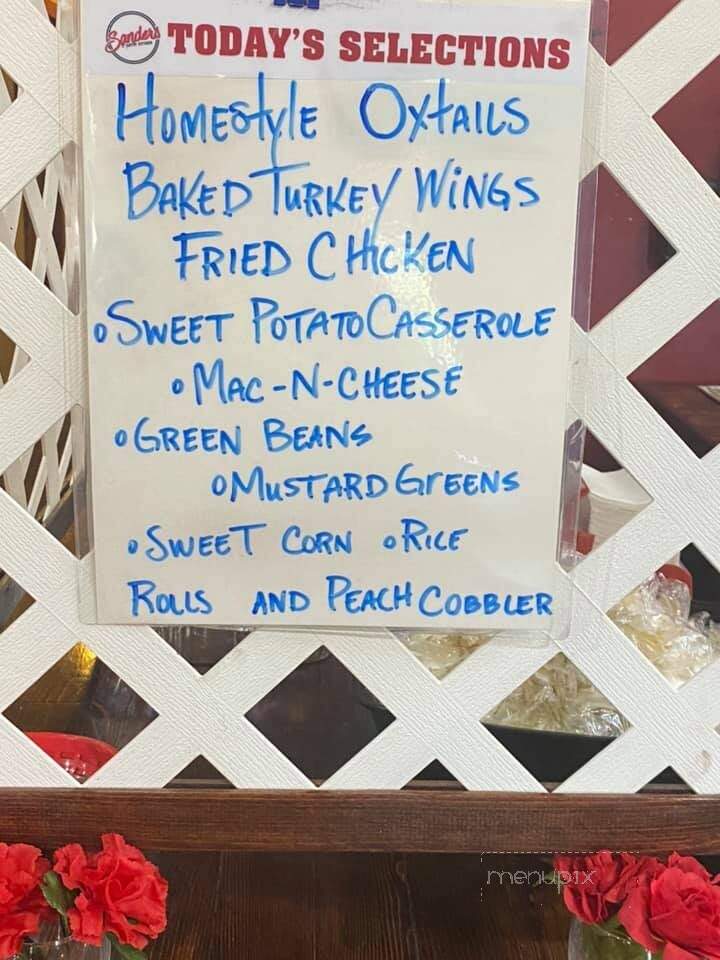 Sanders TODAY'S SELECTIONS
HOMEStylE OxtAILS
BAKED TURKEY WiNGS
FRIED CHicKEN
• SWEET POTATO CASSEROLE
• MAC-N-CHEESE
• GREEN BEANS
• MUSTARD GrEENS
• SWEET CORN • RICE
ROLLS AND PEACH COBBLER
menupix